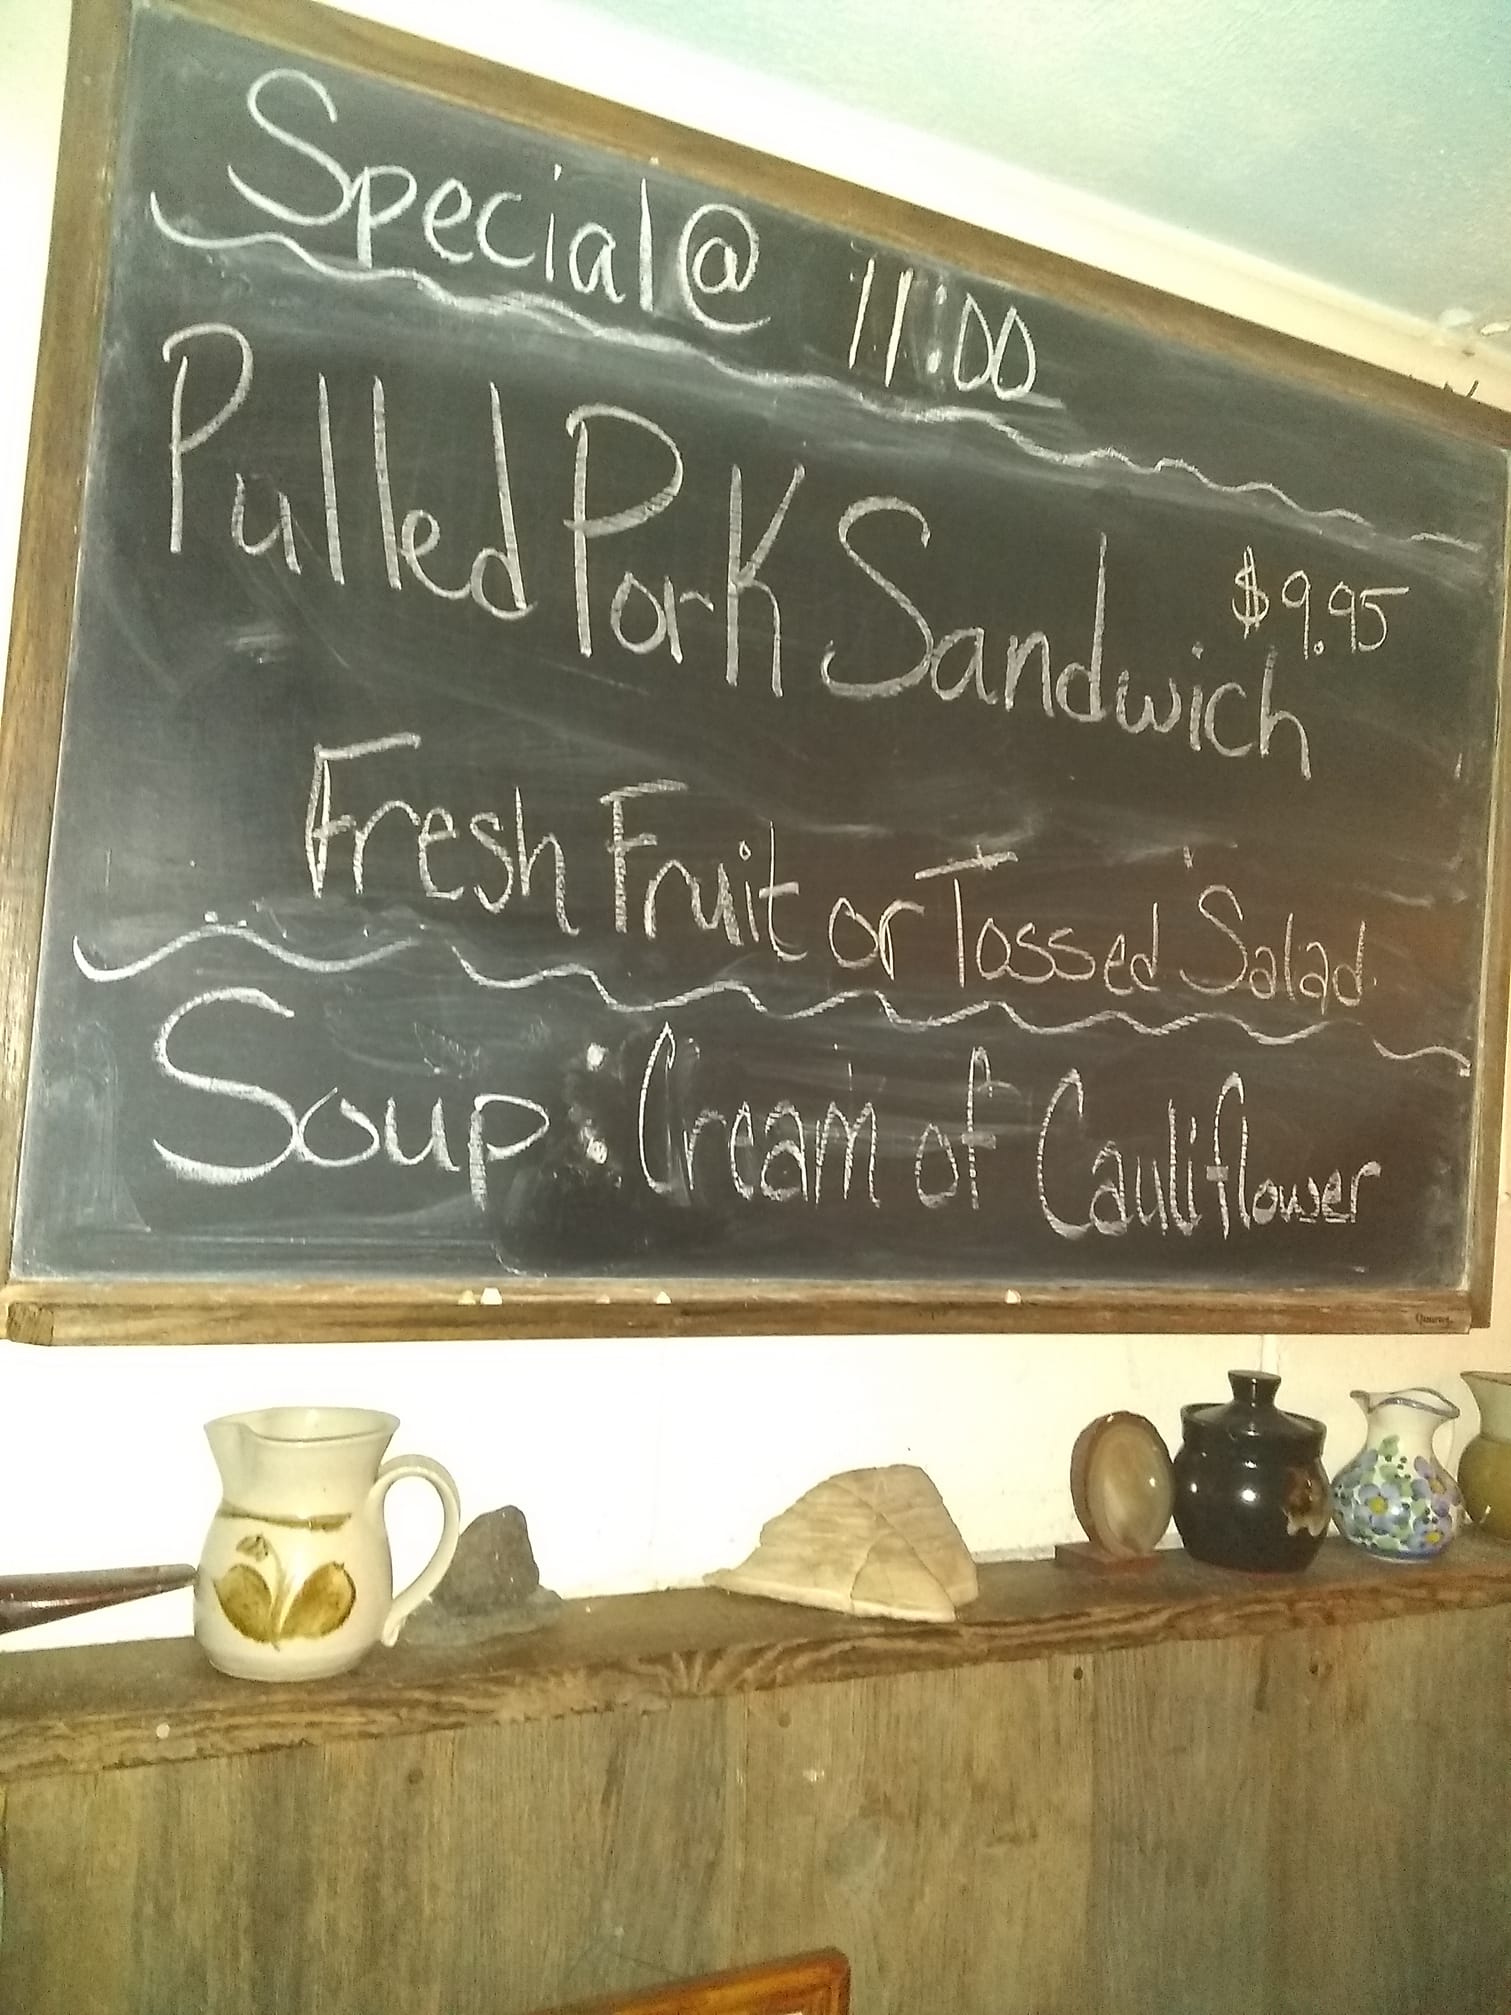 Special @ 11:00
Pulled Pork Sandwich $9.95
Fresh Fruit or Tossed Salad
Soup: Cream of Cauliflower